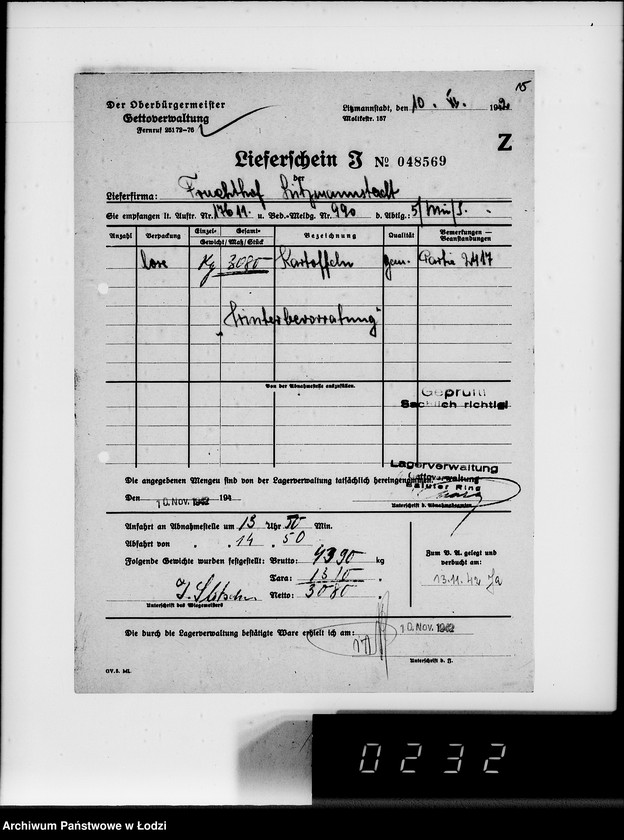 15
Der Oberbürgermeister
Gettoverwaltung
Fernruf 26172-76
Litzmannstadt, den 10. 194
Moltkestr. 157
Z
Lieferschein J № 048569
der
Lieferfirma: Fruchthof Litzmannstadt
Sie empfangen lt. Auftr. Nr. u. Bed.-Meldg. Nr. 990 d. Abtlg.:
Anzahl Verpackung Einzel- Gesamt- Gewicht/Maß/Stück Bezeichnung Qualität Bemerkungen — Beanstandungen
lose Kg 3080 Kartoffeln Partie 2417
"Winterbevorratung"
Von der Abnahmestelle auszufüllen.
Geprüft
Sachlich richtig!
Lagerverwaltung
Die angegebenen Mengen sind von der Lagerverwaltung tatsächlich hereingenommen.
Gettoverwaltung
Baluter Ring
Den 10. Nov. 1942 194
Unterschrift d. Abnahmebeamten
Anfahrt an Abnahmestelle um 13 Uhr Min.
Abfahrt von 14 . 50
Folgende Gewichte wurden festgestellt: Brutto: 4390 kg
Tara: 1310 "
Netto: 3080 "
Unterschrift des Wiegemeisters
Zum B. A. gelegt und
verbucht am:
13.11.42
Die durch die Lagerverwaltung bestätigte Ware erhielt ich am: 10. Nov. 1942
Unterschrift d. J.
GV. 5. ML.
0232
Archiwum Państwowe w Łodzi